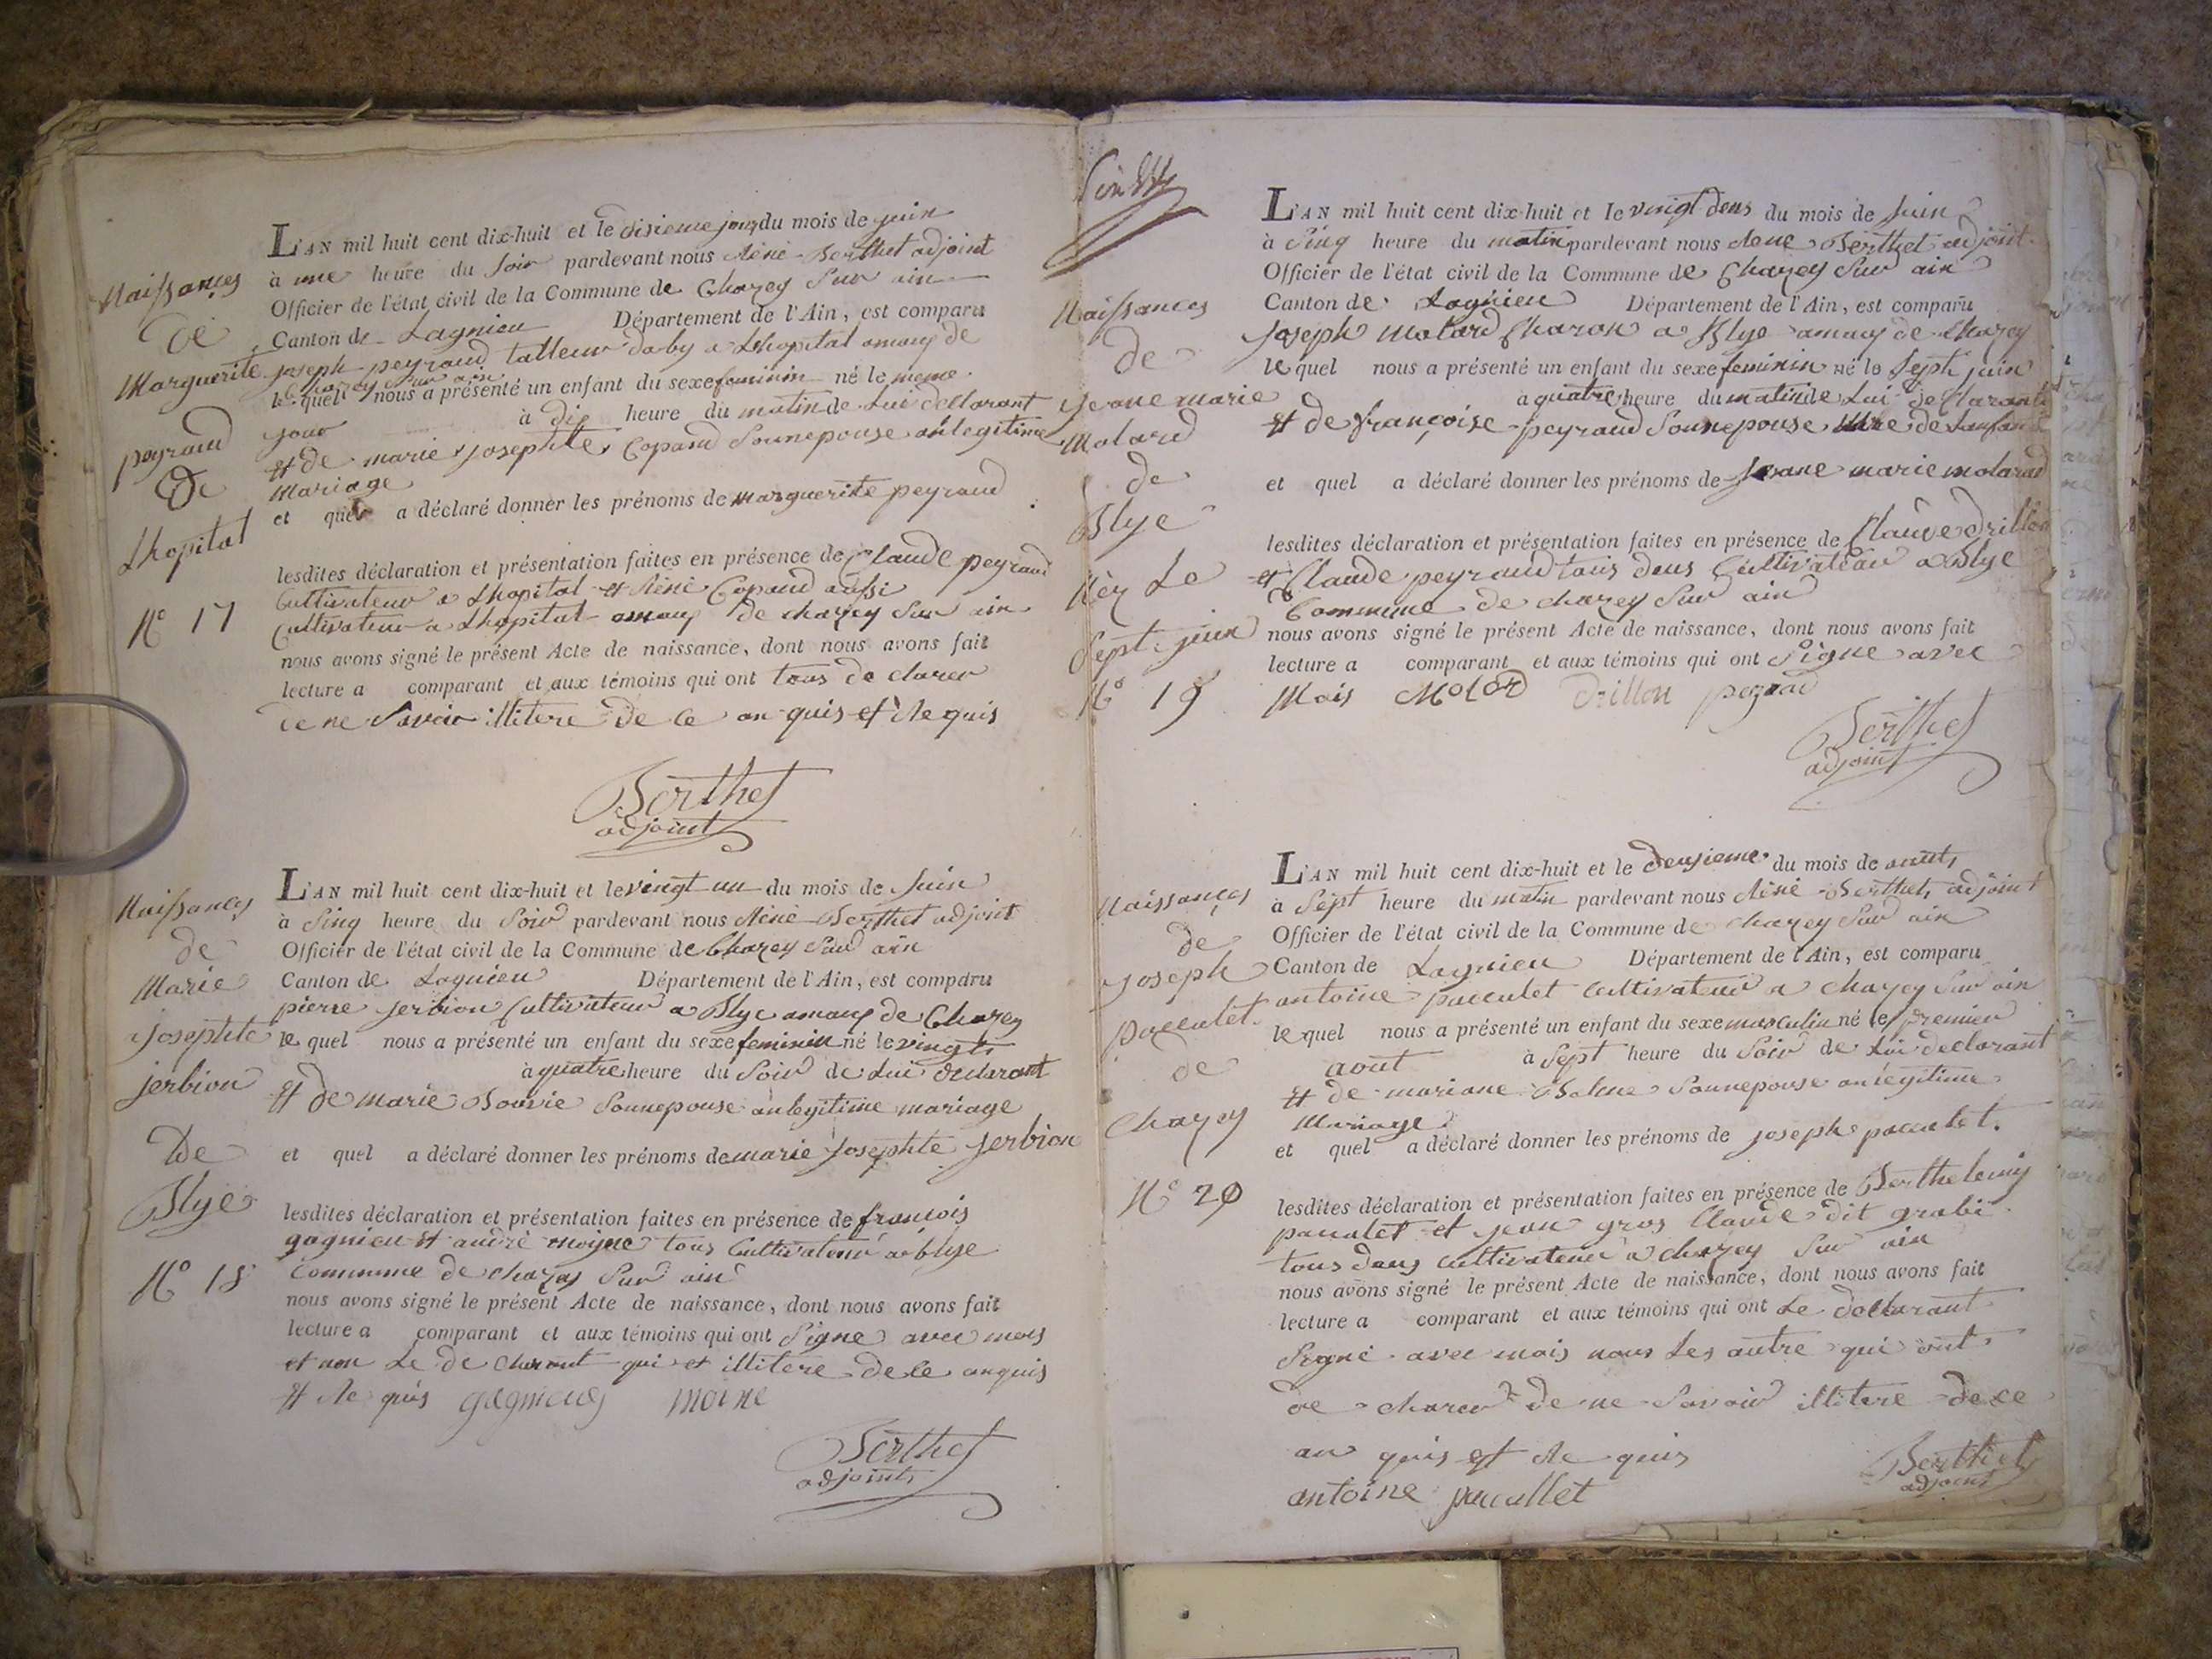 Naissances
de
Marguerite
peyraud
De
Lhopital
N° 17
L'AN mil huit cent dix-huit et le disieme jour du mois de juin
à une heure du soir pardevant nous Réné Berthet adjoint
Officier de l'état civil de la Commune de Chazey Sur ain
Canton de Lagnieu Département de l'Ain, est comparu
joseph peyraud talleur daby a Lhopital amau de
Chazey Sur ain
le quel nous a présenté un enfant du sexe feminin né le meme
jour à dix heure du matin de Lui declarant
et de marie josephte Copand Sonnepouse an legitime
Mariage
et quel a déclaré donner les prénoms de marguerite peyraud
lesdites déclaration et présentation faites en présence de Claude peyraud
Cultivateur a Lhopital et Réné Copand aussi
Cultivateur a Lhopital amau de chazey Sur ain
nous avons signé le présent Acte de naissance, dont nous avons fait
lecture a comparant et aux témoins qui ont tous de clarer
de ne Savoir illitere de ce an quis et Re quis
Berthet
adjoint
Naissances
de
Marie
josephte
jerbion
De
Blye
N° 18
L'AN mil huit cent dix-huit et le vingt un du mois de Juin
à Sinq heure du Soir pardevant nous Réné Berthet adjoint
Officier de l'état civil de la Commune de Chazey Sur ain
Canton de Lagnieu Département de l'Ain, est comparu
pierre jerbion Cultivateur a Blye amau de Chazey
le quel nous a présenté un enfant du sexe feminin né le vingts
à quatre heure du Soir de Lui declarant
et de marie Bouvie Sonnepouse an legitime mariage
et quel a déclaré donner les prénoms de marie josephte jerbion
lesdites déclaration et présentation faites en présence de françois
gagnieu et andré moyne tous Cultivateur a blye
Commune de chazey Sur ain
nous avons signé le présent Acte de naissance, dont nous avons fait
lecture a comparant et aux témoins qui ont Signe avec mois
et non Le de clarant qui et illitere de ce anquis
et Re quis gagnieus moine
Berthet
adjoint
Naissances
de
jeane marie
Molard
de
Blye
Néz Le
Sept juin
N° 19
L'AN mil huit cent dix-huit et le vingt deus du mois de Juin
à Sinq heure du matin pardevant nous Rene Berthet adjoint
Officier de l'état civil de la Commune de Chazey Sur ain
Canton de Lagnieu Département de l'Ain, est comparu
Joseph Molard Charon a Blye amau de Chazey
le quel nous a présenté un enfant du sexe feminin né le Sept juin
à quatre heure du matin de Lui declarant
et de françoise peyraud Sonnepouse Mere de Lanfant
et quel a déclaré donner les prénoms de Jeane marie molard
lesdites déclaration et présentation faites en présence de Claude Drillon
et Claude peyraud tous deus Cultivateur a Blye
Commune de chazey Sur ain
nous avons signé le présent Acte de naissance, dont nous avons fait
lecture a comparant et aux témoins qui ont Signe avec
Mois Molard Drillon peyrad
Berthet
adjoint
Naissances
de
joseph
paccalet
de
Chazey
N° 20
L'AN mil huit cent dix-huit et le deusieme du mois de aout
à Sept heure du matin pardevant nous Réné Berthet adjoint
Officier de l'état civil de la Commune de chazey Sur ain
Canton de Lagnieu Département de l'Ain, est comparu
antoine paccalet Cultivateur a Chazey Sur ain
le quel nous a présenté un enfant du sexe masculin né le premier
aout à Sept heure du Soir de Lui declarant
et de mariane Sonnepouse an legitime
Mariage
et quel a déclaré donner les prénoms de joseph paccalet.
lesdites déclaration et présentation faites en présence de Berthelemy
pacalet et jean gros Claude dit grabi
tous deus Cultivateur a chazey Sur ain
nous avons signé le présent Acte de naissance, dont nous avons fait
lecture a comparant et aux témoins qui ont Le declarant
Signé avec mois nous Les autre qui ont
de clarer de ne Savoir illitere de ce
an quis et Re quis
antoine paccallet
Berthet
adjoint